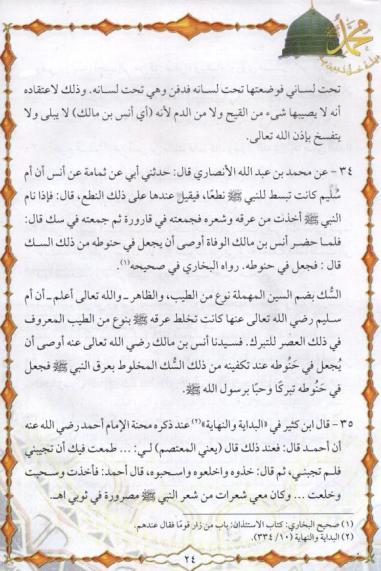 محمد
تحت لساني فوضعتها تحت لسانه فدفن وهي تحت لسانه. وذلك لاعتقاده
أنه لا يصيبها شىء من القيح ولا من الدم لأنه (أي أنس بن مالك) لا يبلى ولا
يتفسخ بإذن الله تعالى.
٣٤ - عن محمد بن عبد الله الأنصاري قال: حدثني أبي عن ثمامة عن أنس أن أم
سُليم كانت تبسط للنبي ﷺ نطعًا، فيقيل عندها على ذلك النطع، قال: فإذا نام
النبي ﷺ أخذت من عرقه وشعره فجمعته في قارورة ثم جمعته في سك قال:
فلما حضر أنس بن مالك الوفاة أوصى أن يجعل في حنوطه من ذلك السك
قال : فجعل في حنوطه. رواه البخاري في صحيحه(١).
السُّك بضم السين المهملة نوع من الطيب، والظاهر ـ والله تعالى أعلم ـ أن أم
سليم رضي الله تعالى عنها كانت تخلط عرقه ﷺ بنوع من الطيب المعروف
في ذلك العصر للتبرك. فسيدنا أنس بن مالك رضي الله تعالى عنه أوصى أن
يُجعل في حَنُوطه عند تكفينه من ذلك السُّك المخلوط بعرق النبي ﷺ فجعل
في حَنُوطه تبركًا وحبًا برسول الله ﷺ.
٣٥ - قال ابن كثير في «البداية والنهاية»(٢) عند ذكره محنة الإمام أحمد رضي الله عنه
أن أحمد قال: فعند ذلك قال (يعني المعتصم) لي: ... طمعت فيك أن تجيبني
فلم تجبني، ثم قال: خذوه واخلعوه واسحبوه، قال أحمد: فأخذت وسحبت
وخلعت ... وكان معي شعرات من شعر النبي ﷺ مصرورة في ثوبي اهـ.
(١) صحيح البخاري: كتاب الاستئذان: باب من زار قومًا فقال عندهم.
(٢) البداية والنهاية (١٠/ ٣٣٤)
٢٤